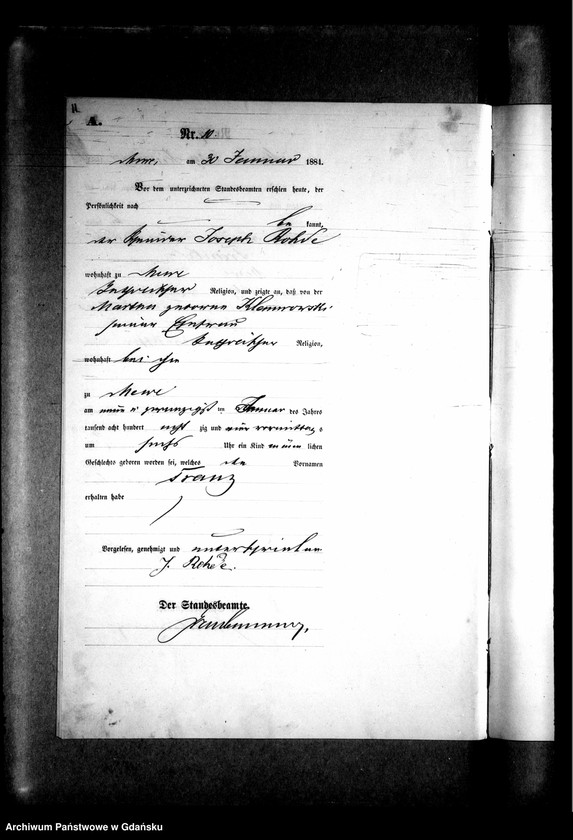 A.
Nr. 10.
Mewe, am 30 Januar 1884.
Vor dem unterzeichneten Standesbeamten erschien heute, der
Persönlichkeit nach
be kannt,
der Joseph Rohde
wohnhaft zu Mewe
katholischer Religion, und zeigte an, daß von der
geborene
seiner Ehefrau
katholischer Religion,
wohnhaft bei ihm
zu Mewe
am neun u zwanzigsten Januar des Jahres
tausend acht hundert acht zig und vier vormittag s
um sechs Uhr ein Kind männ lichen
Geschlechts geboren worden sei, welches den Vornamen
Franz
erhalten habe
Vorgelesen, genehmigt und unterschrieben
J. Rohde.
Der Standesbeamte.
Archiwum Państwowe w Gdańsku